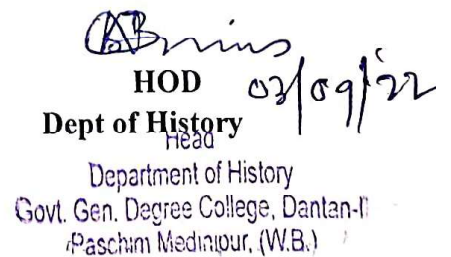 HOD 02/09/22
Dept of History
Head
Department of History
Govt. Gen. Degree College, Dantan-II
Paschim Medinipur, (W.B.)